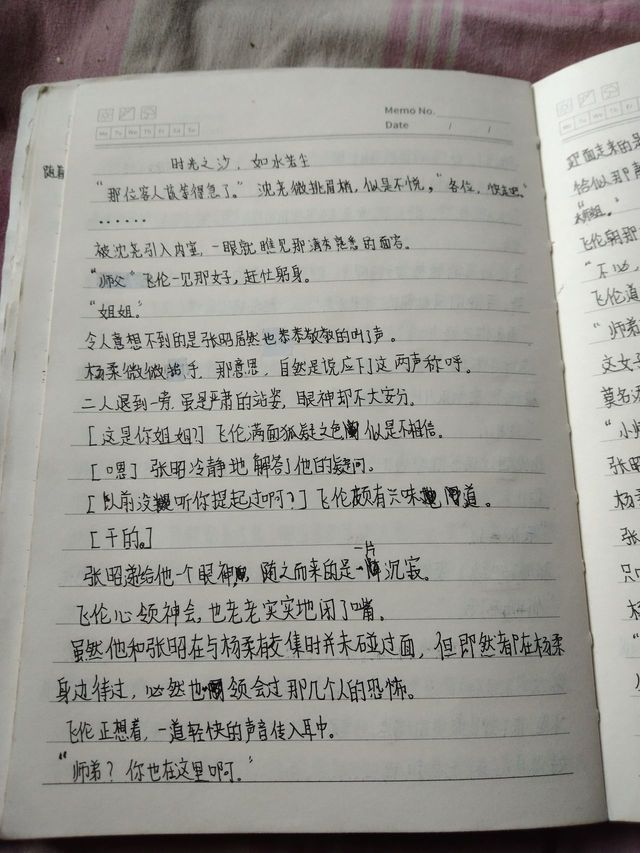 Memo No.
Date / /
Mo Tu We Th Fr Sa Su
时光之沙，如水先生
"那位客人该等得急了。"沈羌微挑眉梢，似是不悦，"各位，快走吧。"
......
被沈羌引入内室，一眼就瞧见那满布熟悉的面容。
"师父"飞伦一见那女子，赶忙躬身。
"姐姐。"
令人意想不到的是张昭居然也恭恭敬敬的叫了声。
杨柔微微抬手，那意思，自然是说应下了这两声称呼。
二人退到一旁，虽是严肃的站姿，眼神却不大安分。
[这是你姐姐?]飞伦满面狐疑之色 似是不相信。
[嗯]张昭冷静地解答了他的疑问。
[以前没听你提起过啊?]飞伦颇有兴味 问道。
[干的。]
张昭递给他一个眼神，随之而来的是一片沉寂。
飞伦心领神会，也老老实实地闭了嘴。
虽然他和张昭在与杨柔有交集时并未碰过面，但即然都在杨柔
身边待过，必然也领会过那几个人的恐怖。
飞伦正想着，一道轻快的声音传入耳中。
"师弟？你也在这里啊。"
随
那面走来的是
恰似那声
飞伦朝那
"不必
飞伦道
"师弟
这女子
莫名
"小师
张昭
杨
张
只
杨